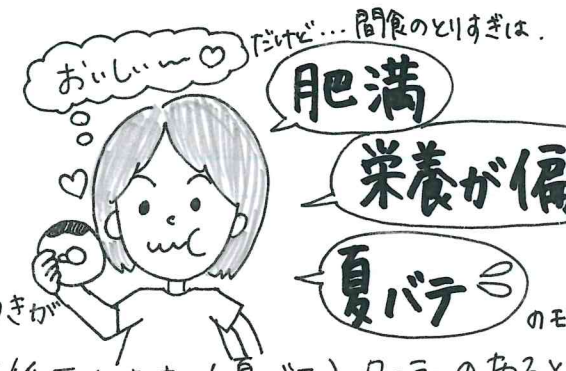 おいしぃー♡
だけど…間食のとりすぎは.
肥満
栄養が偏
夏バテ
つきが
のモ